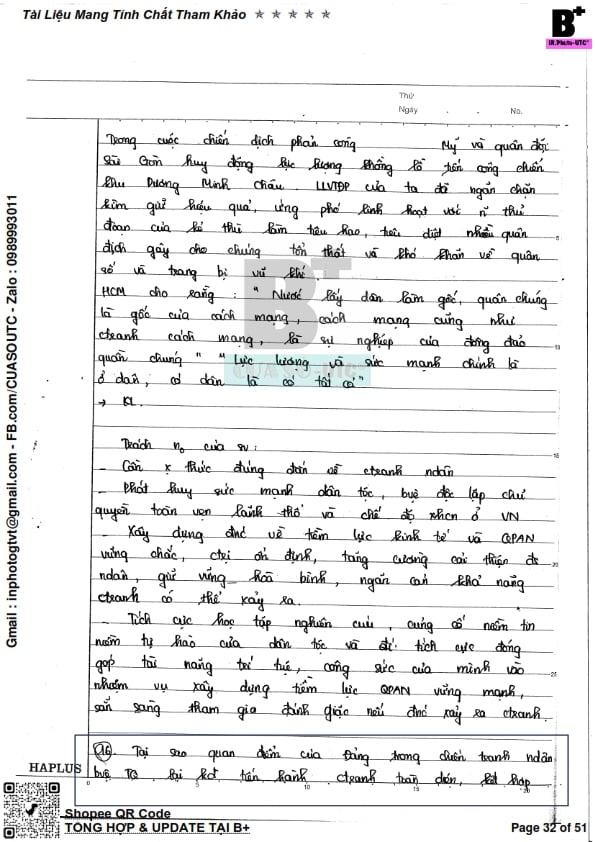 Tài Liệu Mang Tính Chất Tham Khảo ★ ★ ★ ★ ★
B+
IN.Photo-UTC
Thứ
Ngày . . No.
Trong cuộc chiến dịch phản công Mỹ và quân đội
Sài Gòn huy động lực lượng khổng lồ tiến công chiến
khu Dương Minh Châu. LLVTĐP của ta đã ngăn chặn
kìm giữ hiệu quả, ứng phó linh hoạt với thủ
đoạn của kẻ thù làm tiêu hao, tiêu diệt nhiều quân
địch gây cho chúng tổn thất và khó khăn về quân
số và trang bị vũ khí.
HCM cho rằng : "Nước lấy dân làm gốc, quần chúng
là gốc của cách mạng, cách mạng cũng như
ctranh cách mạng, là sự nghiệp của đông đảo
quần chúng" "Lực lượng và sức mạnh chính là
ở dân, có dân là có tất cả"
→ KL.
Trách no của sv :
- Cần x thức đúng đắn về ctranh ndân
- Phát huy sức mạnh dân tộc, bvệ độc lập chủ
quyền toàn vẹn lãnh thổ và chế độ xhcn ở VN
- Xây dựng đnc về tiềm lực kinh tế và QPAN
vững chắc, ctrị ổn định, tăng cường cải thiện đs
ndân, giữ vững hoà bình, ngăn cản khả năng
ctranh có thể xảy ra.
- Tích cực học tập nghiên cứu, củng cố niềm tin
niềm tự hào của dân tộc và tích cực đóng
góp tài năng trí tuệ, công sức của mình vào
nhiệm vụ xây dựng tiềm lực QPAN vững mạnh,
sẵn sàng tham gia đánh giặc nếu đnc xảy ra ctranh.
16. Tại sao quan điểm của Đảng trong chiến tranh ndân
bvệ TQ lại là tiến hành ctranh toàn diện, kết hợp
5
10
15
20
25
0 5 10 15 20
B+
CUA SO-UTC
HAPLUS
Gmail : inphotogtvt@gmail.com - FB.com/CUASOUTC - Zalo : 0989993011
Shopee QR Code
TỔNG HỢP & UPDATE TẠI B+
Page 32 of 51